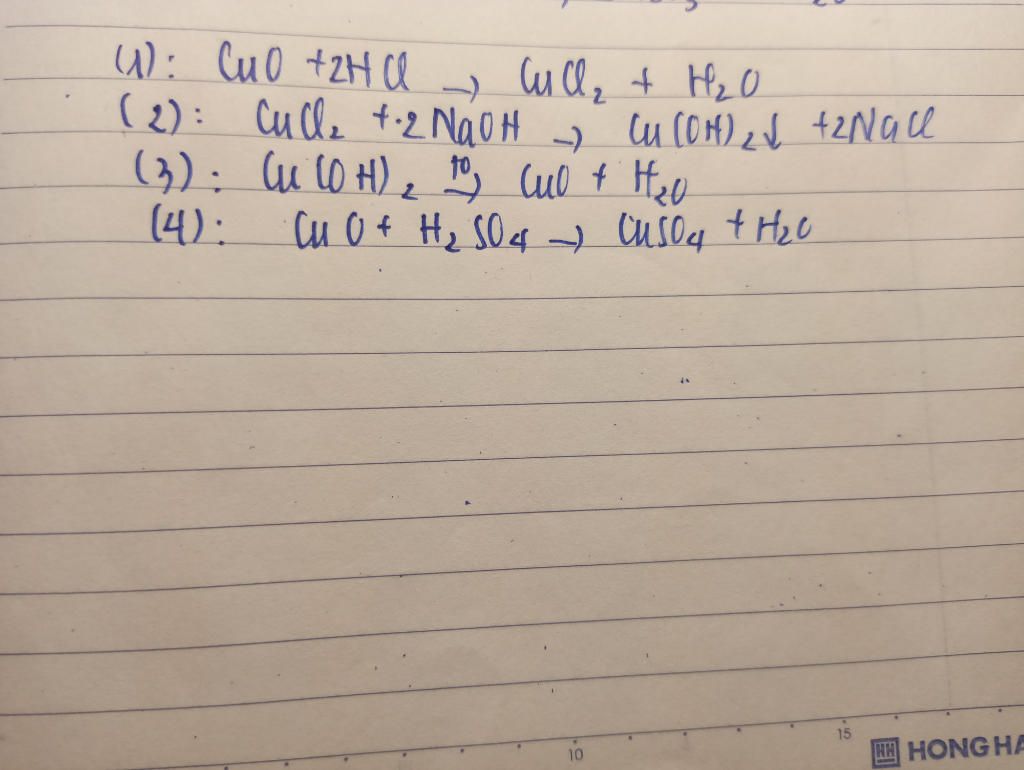 (1): CuO + 2HCl → CuCl₂ + H₂O
(2): CuCl₂ + 2 NaOH → Cu(OH)₂↓ + 2NaCl
(3): Cu(OH)₂ →(t⁰) CuO + H₂O
(4): CuO + H₂SO₄ → CuSO₄ + H₂O
10
15
HH HONG HA